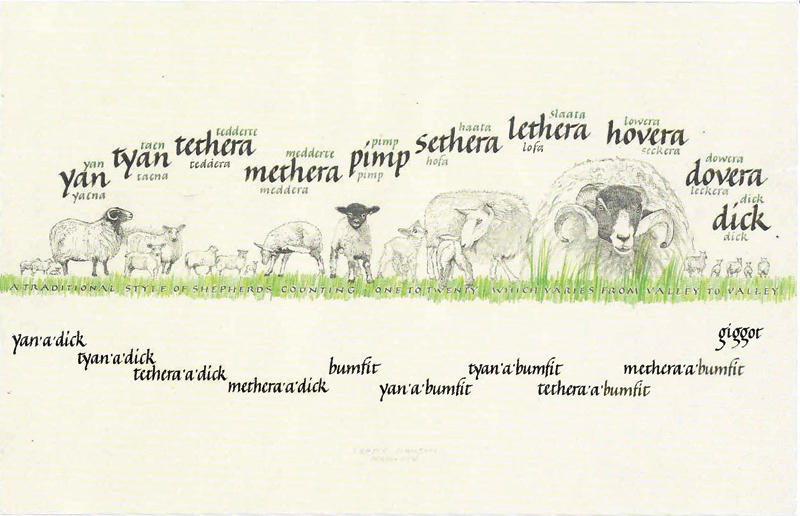 yan
yan
yaena
taen
tyan
taena
tedderte
tethera
teddera
medderte
methera
meddera
pimp
pimp
pimp
haata
sethera
hofa
slaata
lethera
lofa
lowera
hovera
seckera
dowera
dovera
leckera
dick
dick
dick
A TRADITIONAL STYLE OF SHEPHERDS COUNTING ONE TO TWENTY WHICH VARIES FROM VALLEY TO VALLEY
yan·a·dick
tyan·a·dick
tethera·a·dick
methera·a·dick
bumfit
yan·a·bumfit
tyan·a·bumfit
tethera·a·bumfit
methera·a·bumfit
giggot